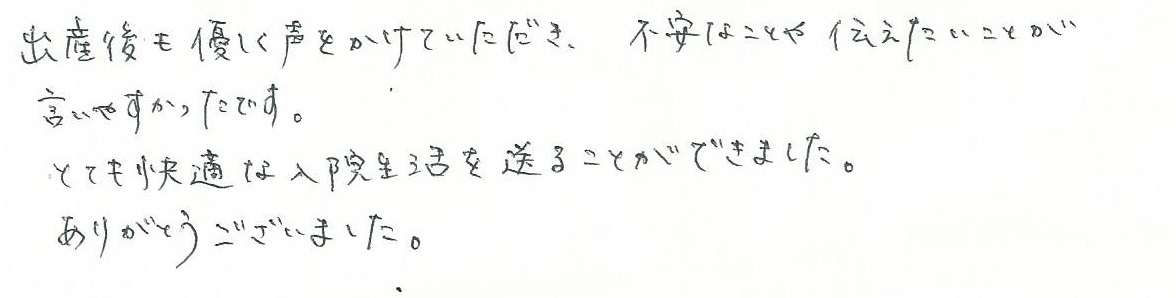 出産後も優しく声をかけていただき、不安なことや伝えたいことが
言いやすかったです。
とても快適な入院生活を送ることができました。
ありがとうございました。